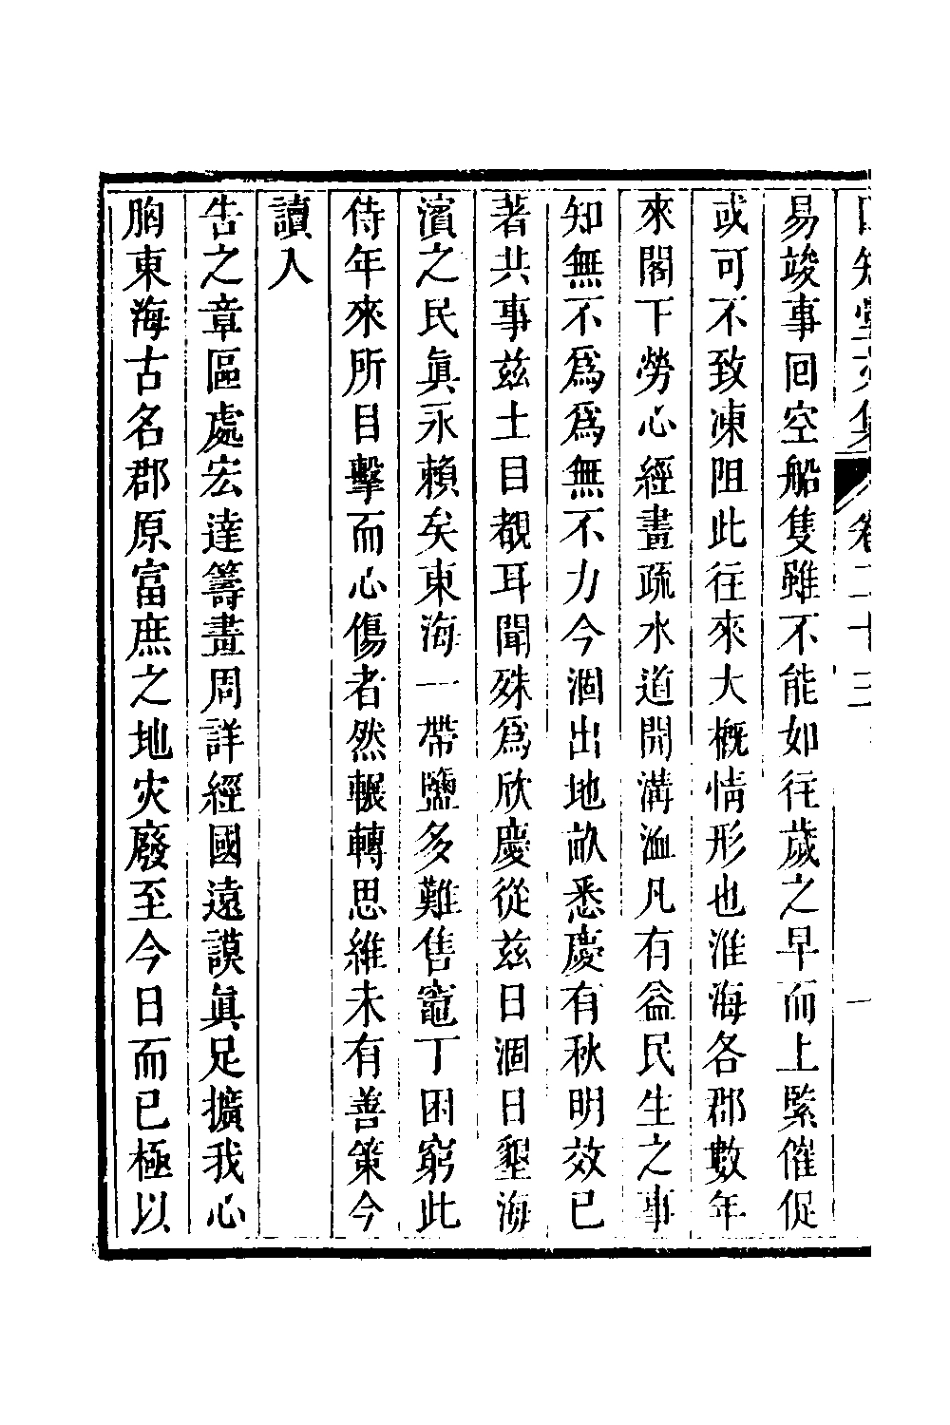 四知堂文集 卷二十三 一
易竣事回空船隻雖不能如往歲之早而上緊催促
或可不致凍阻此往來大概情形也淮海各郡數年
來閣下勞心經畫疏水道開溝洫凡有益民生之事
知無不爲爲無不力今涸出地畝悉慶有秋明效已
著共事兹土目覩耳聞殊爲欣慶從兹日涸日墾海
濱之民眞永賴矣東海一帶鹽多難售竈丁困窮此
侍年來所目擊而心傷者然輾轉思維未有善策今
讀入
告之章區處宏達籌畫周詳經國遠謨眞足擴我心
胸東海古名郡原富庶之地灾廢至今日而已極以